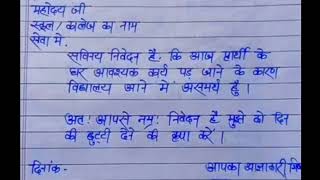 महोदय जी
स्कूल/कालेज का नाम
सेवा मे.
सविनय निवेदन है. कि आज प्रार्थी के
घर आवश्यक कार्य पड़ जाने के कारण
विद्यालय आने में असमर्थ हूँ।
अतः आपसे नम्र निवेदन है मुझे दो दिन
की छुट्टी देने की कृपा करें।
दिनांक-
आपका आज्ञाकारी